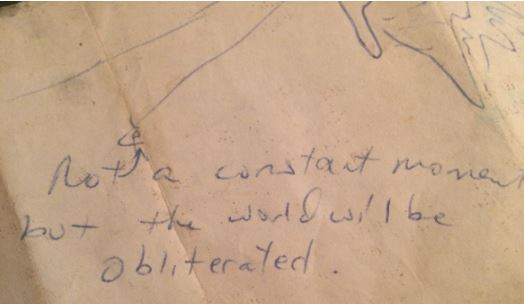 Not a constant moment
but the world will be
obliterated.